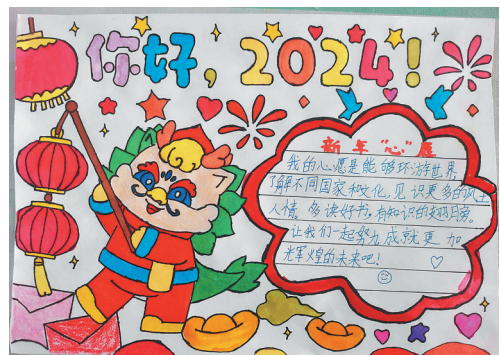 你好,2024!
新年"心"愿
我的心愿是能够环游世界
了解不同国家和文化,见识更多的风土
人情。多读好书,知识的
让我们一起努力成就更加
光辉煌的未来吧!